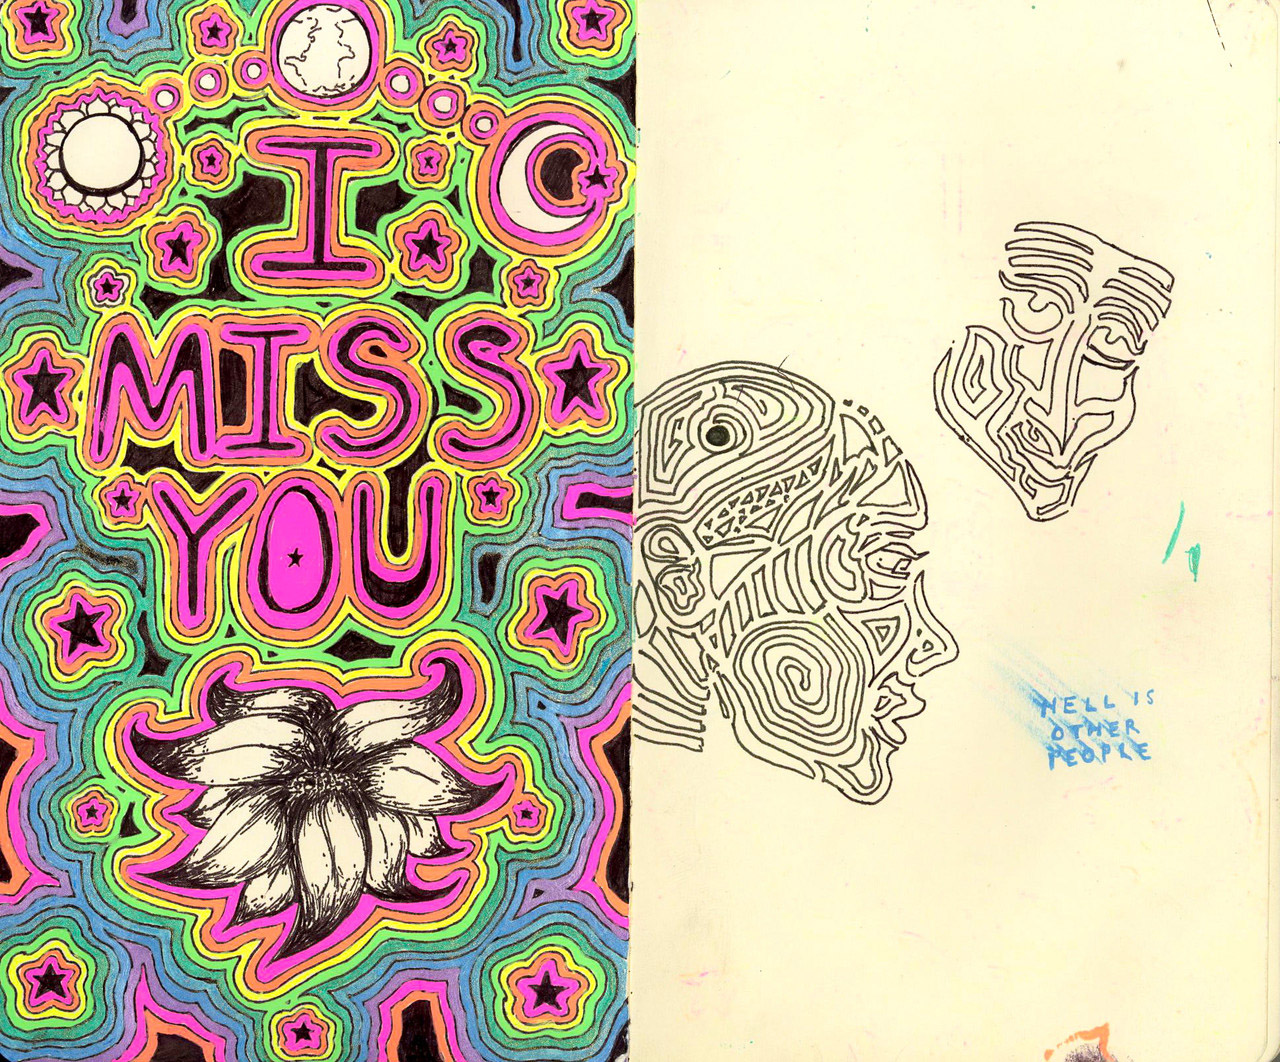 I
MISS
YOU
HELL IS
OTHER
PEOPLE